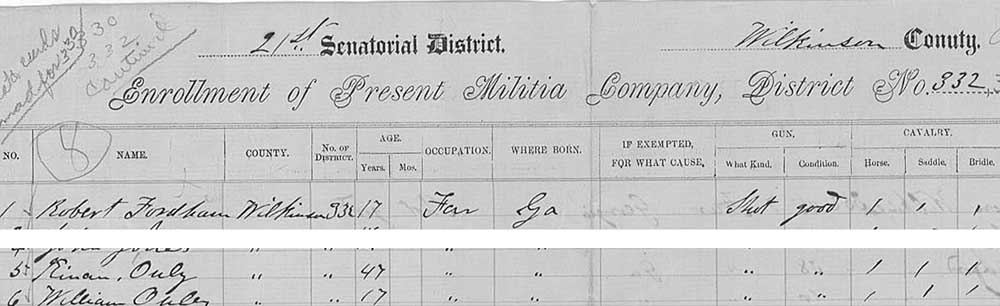 330
332
Continued
21st Senatorial District. Wilkinson Conuty.
Enrollment of Present Militia Company, District No. 332,
8
NO. NAME. COUNTY. NO. OF DISTRICT. AGE. Years. Mos. OCCUPATION. WHERE BORN. IF EXEMPTED, FOR WHAT CAUSE, GUN, What Kind. Condition. CAVALRY. Horse. Saddle. Bridle.
1 Robert Fordham Wilkinson 330 17 Far Ga Shot good 1 1 1
5 Kinan, Ouly " " 47 " " " " 1 1 1
6 William Ouly " " 17 " " " " 1 1 1